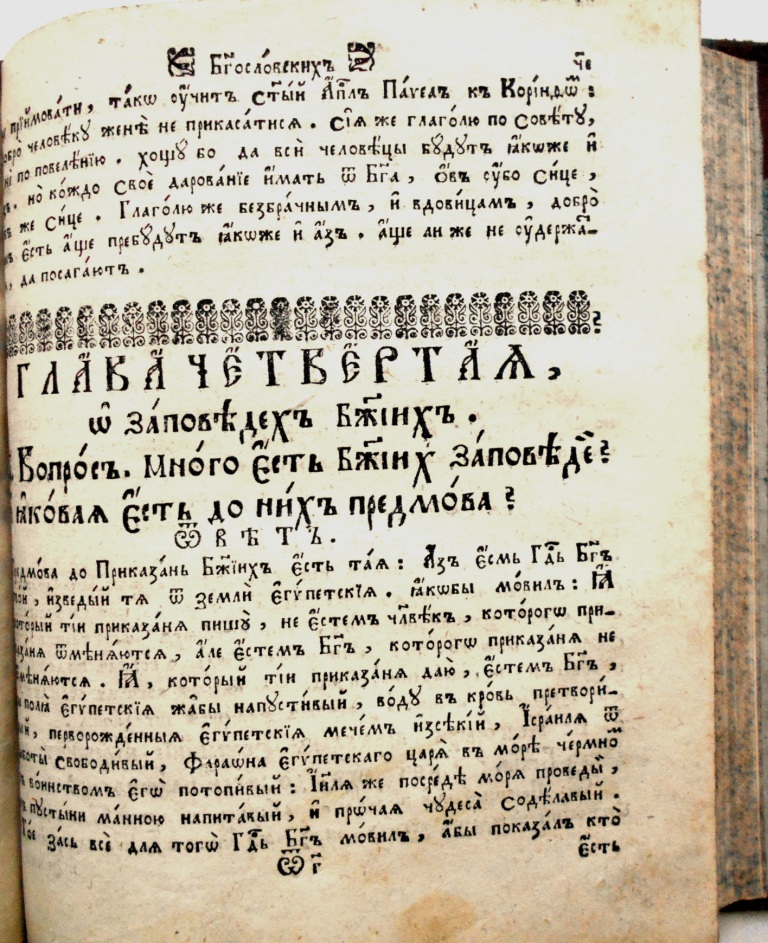 Бг҃осло́вскихъ че҃
прїймова́ти, та́кѡ ᲂу҆чи́тъ ст҃ы́й А҆п҃лъ Па́ѵелъ къ Корі́нѳѡм̾:
добро̀ человѣ́ку женѣ̀ не прикаса́тисѧ. сїѧ̑ же глаго́лю по совѣ́ту,
не по повелѣ́нїю. хощу́ бо да всѝ человѣ́цы бу́дутъ ꙗ҆́коже и҆
но̀ ко́ждо своѐ дарова́нїе и҆́мать ѿ Бг҃а, ѻ҆́въ ᲂу҆́бо си́це,
же си́це. Глаго́лю же безбра́чнымъ, и҆ вдови́цамъ, добро̀
є҆́сть а҆́ще пребу́дутъ ꙗ҆́коже и҆ а҆́зъ. а҆́ще ли же не ᲂу҆держа́-
да посага́ютъ.
ГЛАВА̀ ЧЕТВЕ́РТАѦ,
ѡ҆ за́повѣдехъ Бж҃іихъ.
Вопро́съ. Мно́гѡ є҆́сть Бж҃іихъ за́повѣдей?
ꙗ҆кова́ѧ є҆́сть до ни́хъ предмо́ва?
Ѿвѣ́тъ.
предмо́ва до Приказа́нь Бж҃іихъ є҆́сть таѧ: А҆́зъ є҆́смь Гд҃ь Бг҃ъ
тво́й, и҆зведы́й тѧ ѿ землѝ є҆гѵ́петскїѧ. ꙗ҆́кѡбы мо́вилъ: Ꙗ҆̀
кото́рый тїи приказа́нѧ пишу̀, не є҆́стемъ чл҃вѣ́къ, кото́рогѡ при-
каза́нѧ ѿмѣнѧ́ютсѧ, а҆́ле є҆́стемъ Бг҃ъ, кото́рогѡ приказа́нѧ не
ѿмѣнѧ́ютсѧ. Ꙗ҆̀, кото́рый тїи приказа́нѧ даю̀, є҆́стемъ Бг҃ъ,
на полѧ̀ є҆гѵ́петскїѧ жа́бы напусти́вый, во́ду въ кро́вь претвори́-
вый, перворожде́нныѧ є҆гѵ́петскїѧ мече́мъ и҆зсѣ́кій, І҆сра́илѧ ѿ
рабо́ты свободи́вый, Фараѡ́на є҆гѵ́петскаго царѧ̀ въ мо́рѣ че́рмном̾
съ во́инствомъ є҆гѡ̀ потопи́вый: І҆и҃лѧ же посре́дѣ мо́рѧ проведы́й,
въ пусты́ни ма́нною напита́вый, и҆ прѡ́чаѧ чудеса̀ содѣ́лавый.
То́е за́сь всѐ длѧ тогѡ̀ Гд҃ь Бг҃ъ мо́вилъ, а҆́бы показа́лъ кто̀
Ѿ г҃ є҆́сть